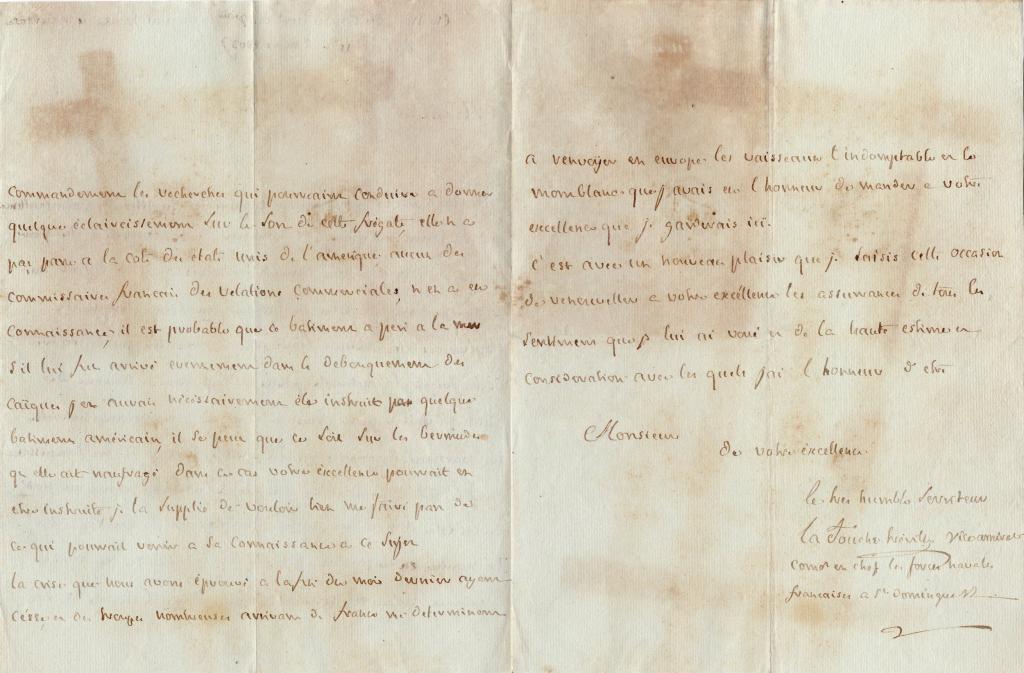 commandement les recherches qui pouvaient conduire a donner
quelque éclaircissement sur le sort de cette frégate elle n a
pas paru a la cote des états unis de l'amerique aucun des
commissaires francais des relations commerciales, n en a eu
connaissance, il est probable que ce batiment a peri a la mer
s'il lui fut arrivé evenement dans le debouquement des
caïques j en aurais nécissairement été instruit par quelque
batiment américain, il se peut que ce soit sur les bermudes
qu elle ait naufragé dans ce cas votre excellence pourrait en
etre instruite je la supplie de vouloir bien me faire part de
ce qui pourrait venir a sa connaissance a ce sujet
la crise que nous avons éprouvé a la fin du mois dernier ayant
céssé, et des troupes nombreuses arrivant de france me determinent
a renvoyer en europe les vaisseaux l'indomptable et le
montblanc que j avais eu l honneur de mander a votre
excellence que je garderais ici.
C'est avec un nouveau plaisir que je saisis cette occasion
de renouveller a votre excéllence les assurances de tous les
sentiment que je lui ai voué et de la haute estime et
consideration avec les quels j'ai l honneur d'etre
Monsieur
de votre excellence.
le tres humble serviteur
la Touche tréville vice amiral
comdt en chef les forces navales
francaises a St domingue &